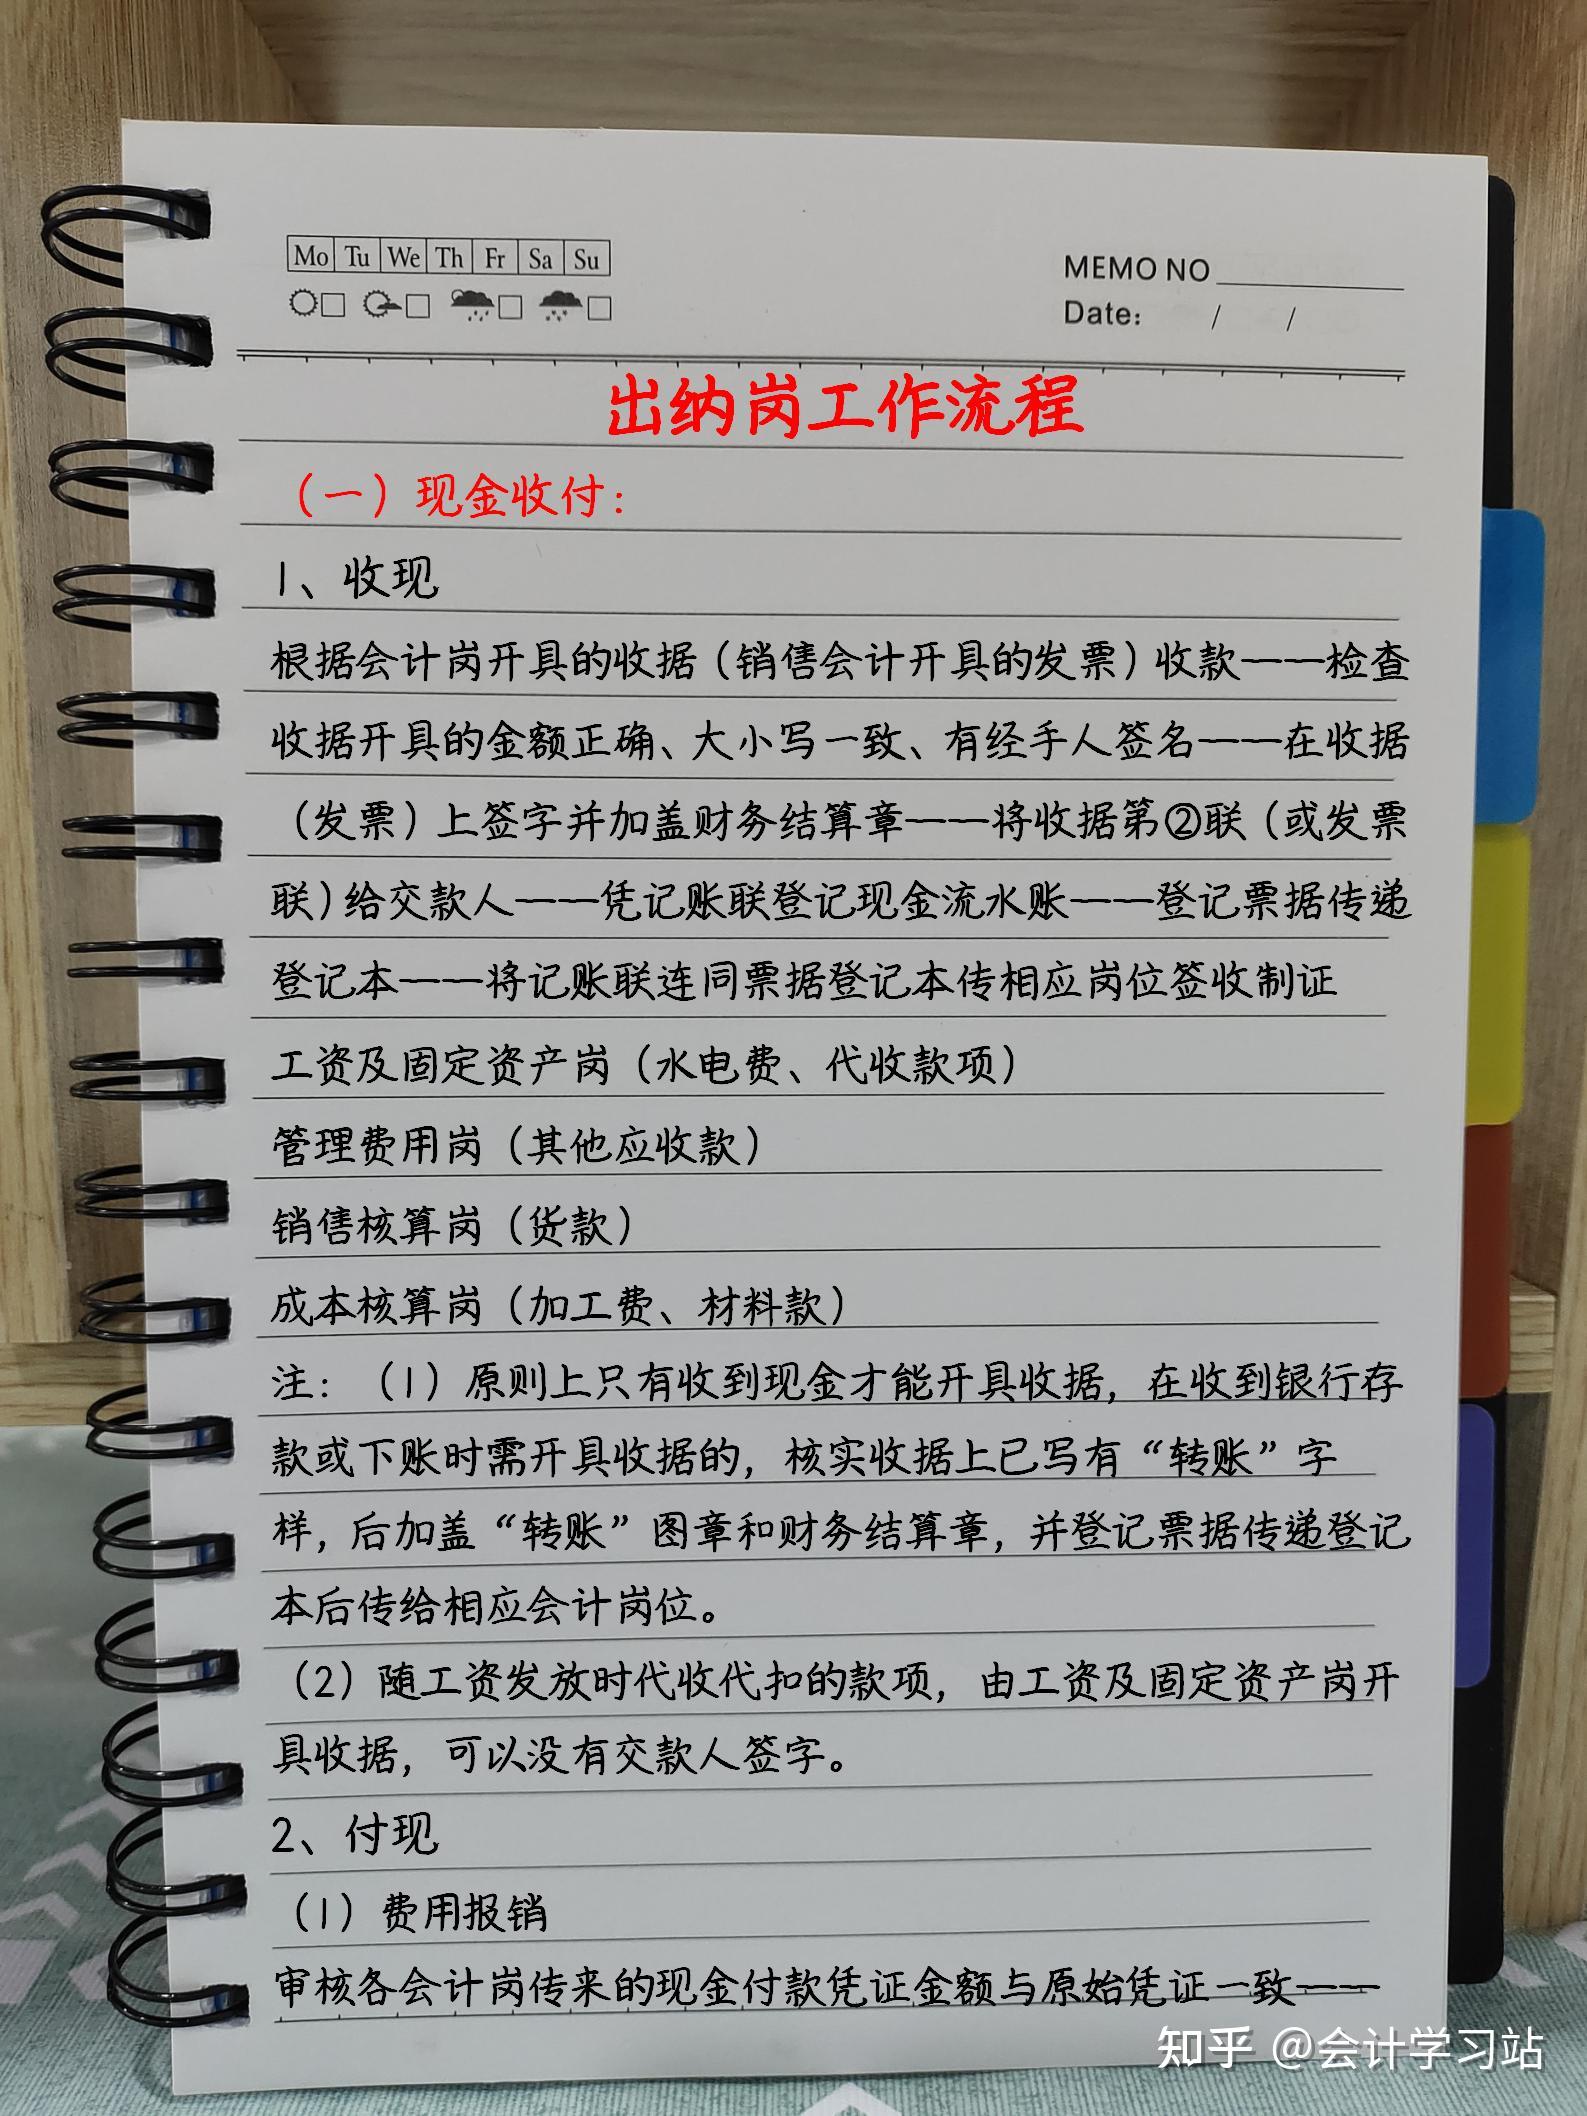 Mo Tu We Th Fr Sa Su
MEMO NO
Date: / /
出纳岗工作流程
（一）现金收付：
1、收现
根据会计岗开具的收据（销售会计开具的发票）收款———检查
收据开具的金额正确、大小写一致、有经手人签名———在收据
（发票）上签字并加盖财务结算章———将收据第②联（或发票
联）给交款人———凭记账联登记现金流水账———登记票据传递
登记本———将记账联连同票据登记本传相应岗位签收制证
工资及固定资产岗（水电费、代收款项）
管理费用岗（其他应收款）
销售核算岗（货款）
成本核算岗（加工费、材料款）
注：（1）原则上只有收到现金才能开具收据，在收到银行存
款或下账时需开具收据的，核实收据上已写有“转账”字
样，后加盖“转账”图章和财务结算章，并登记票据传递登记
本后传给相应会计岗位。
（2）随工资发放时代收代扣的款项，由工资及固定资产岗开
具收据，可以没有交款人签字。
2、付现
（1）费用报销
审核各会计岗传来的现金付款凭证金额与原始凭证一致———
知乎 @会计学习站